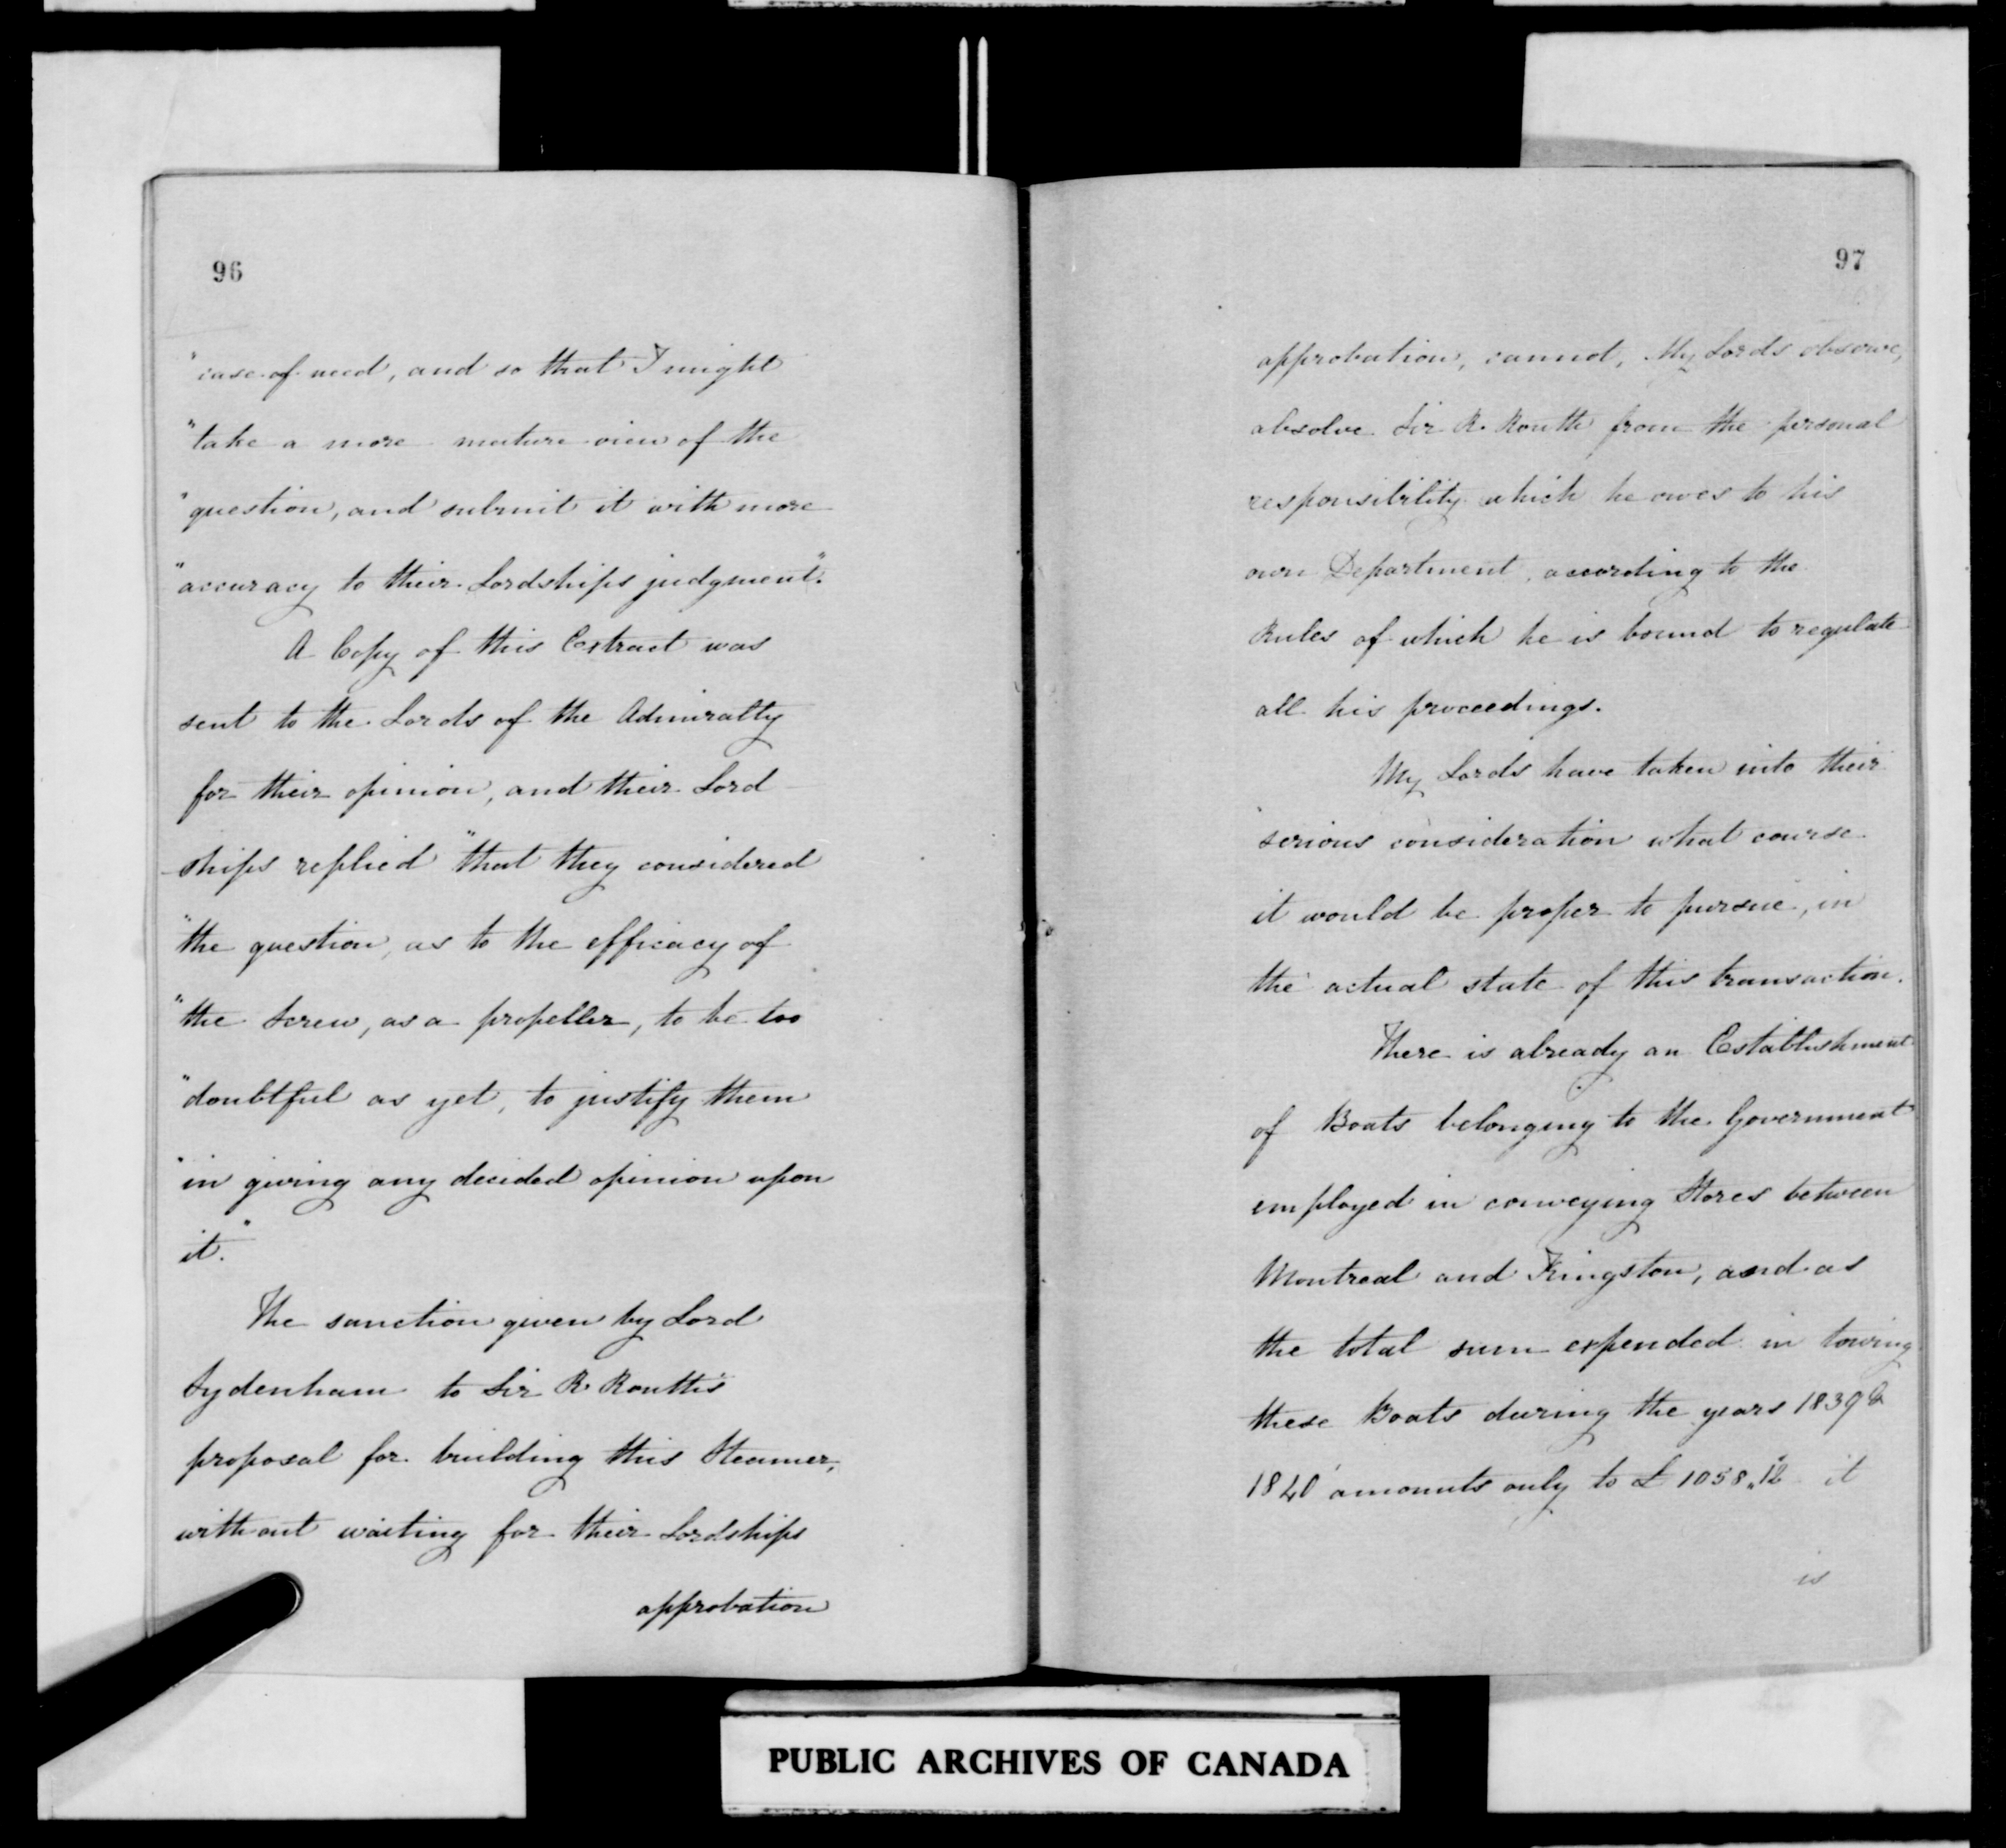 96
"case of need, and so that I might
"take a more mature view of the
"question, and submit it with more
"accuracy to their Lordships judgment."
A Copy of this Extract was
sent to the Lords of the Admiralty
for their opinion, and their Lord
-ships replied "that they considered
"the question, as to the efficacy of
"the Screw, as a propeller, to be too
"doubtful as yet, to justify them
"in giving any decided opinion upon
it."
The sanction given by Lord
Sydenham to Sir R. Routh's
proposal for building this Steamer,
without waiting for their Lordships
approbation
97
approbation, cannot, My Lords observe,
absolve Sir R. Routh from the personal
responsibility which he owes to his
own Department, according to the
Rules of which he is bound to regulate
all his proceedings.
My Lords have taken into their
serious consideration what course
it would be proper to pursue, in
the actual state of this transaction.
There is already an Establishment
of Boats belonging to the Government
employed in conveying Stores between
Montreal and Kingston, and as
the total sum expended in towing
these Boats during the years 1839 &
1840 amounts only to £1058.,12 it
is
PUBLIC ARCHIVES OF CANADA